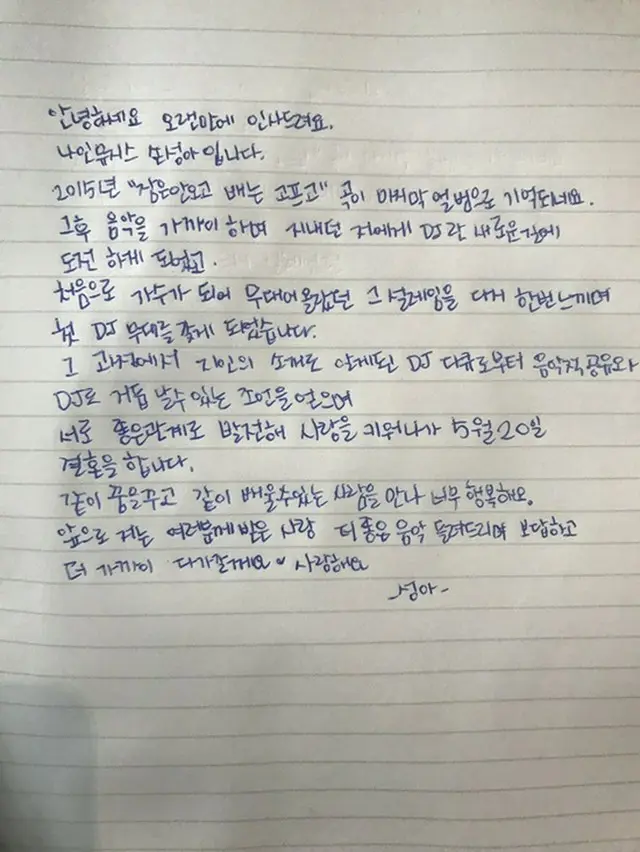 안녕하세요 오랜만에 인사드려요.
나인뮤지스 쏘성아입니다.
2015년 "잠은안오고 배는 고프고" 곡이 마지막 앨범으로 기억되네요.
그후 음악을 가까이 하며 지내던 저에게 DJ란 새로운길에
도전 하게 되었고.
처음으로 가수가 되어 무대에올랐던 그 설레임을 다시 한번느끼며
첫 DJ 무대를 갖게 되었습니다.
그 과정에서 지인의 소개로 알게된 DJ 다큐로부터 음악적공유와
DJ로 거듭 날수있는 조언을 얻으며
서로 좋은관계로 발전해 사랑을 키워나가 5월20일
결혼을 합니다.
같이 꿈을꾸고 같이 배울수있는 사람을 만나 너무 행복해요.
앞으로 저는 여러분께 받은 사랑 더 좋은 음악 들려드리며 보답하고
더 가까이 다가갈께요 ♥ 사랑해요
-성아-